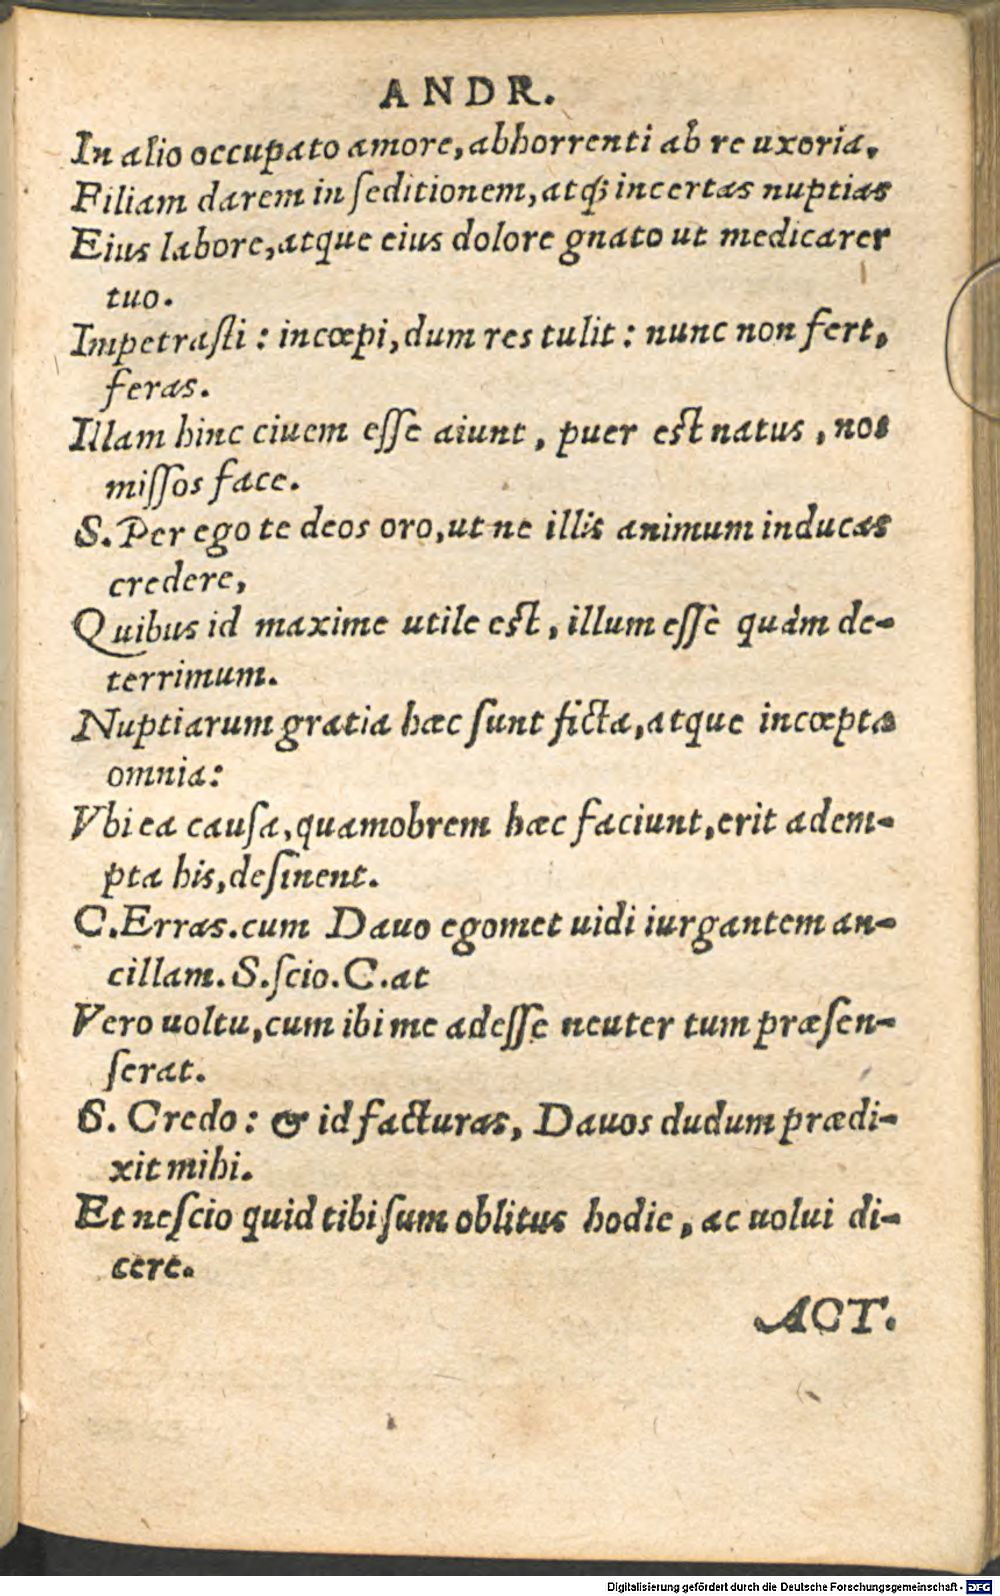 ANDR.
In alio occupato amore, abhorrenti ab re uxoria,
Filiam darem in ſeditionem, atq́; incertas nuptias
Eius labore, atque eius dolore gnato ut medicarer
tuo.
Impetraſti: incœpi, dum res tulit: nunc non fert,
feras.
Illam hinc ciuem eſſe aiunt, puer est natus, nos
miſſos face.
S. Per ego te deos oro, ut ne illis animum inducas
credere,
Quibus id maxime utile est, illum eſſe quàm de-
terrimum.
Nuptiarum gratia hæc ſunt ficta, atque incœpta
omnia:
Vbi ea cauſa, quamobrem hæc faciunt, erit adem-
pta his, deſinent.
C. Erras. cum Dauo egomet uidi iurgantem an-
cillam. S. ſcio. C. at
Vero uoltu, cum ibi me adeſſe neuter tum præſen-
ſerat.
S. Credo: & id facturas, Dauos dudum prædi-
xit mihi.
Et neſcio quid tibi ſum oblitus hodie, ac uolui di-
cere.
ACT.
Digitalisierung gefördert durch die Deutsche Forschungsgemeinschaft - DFG